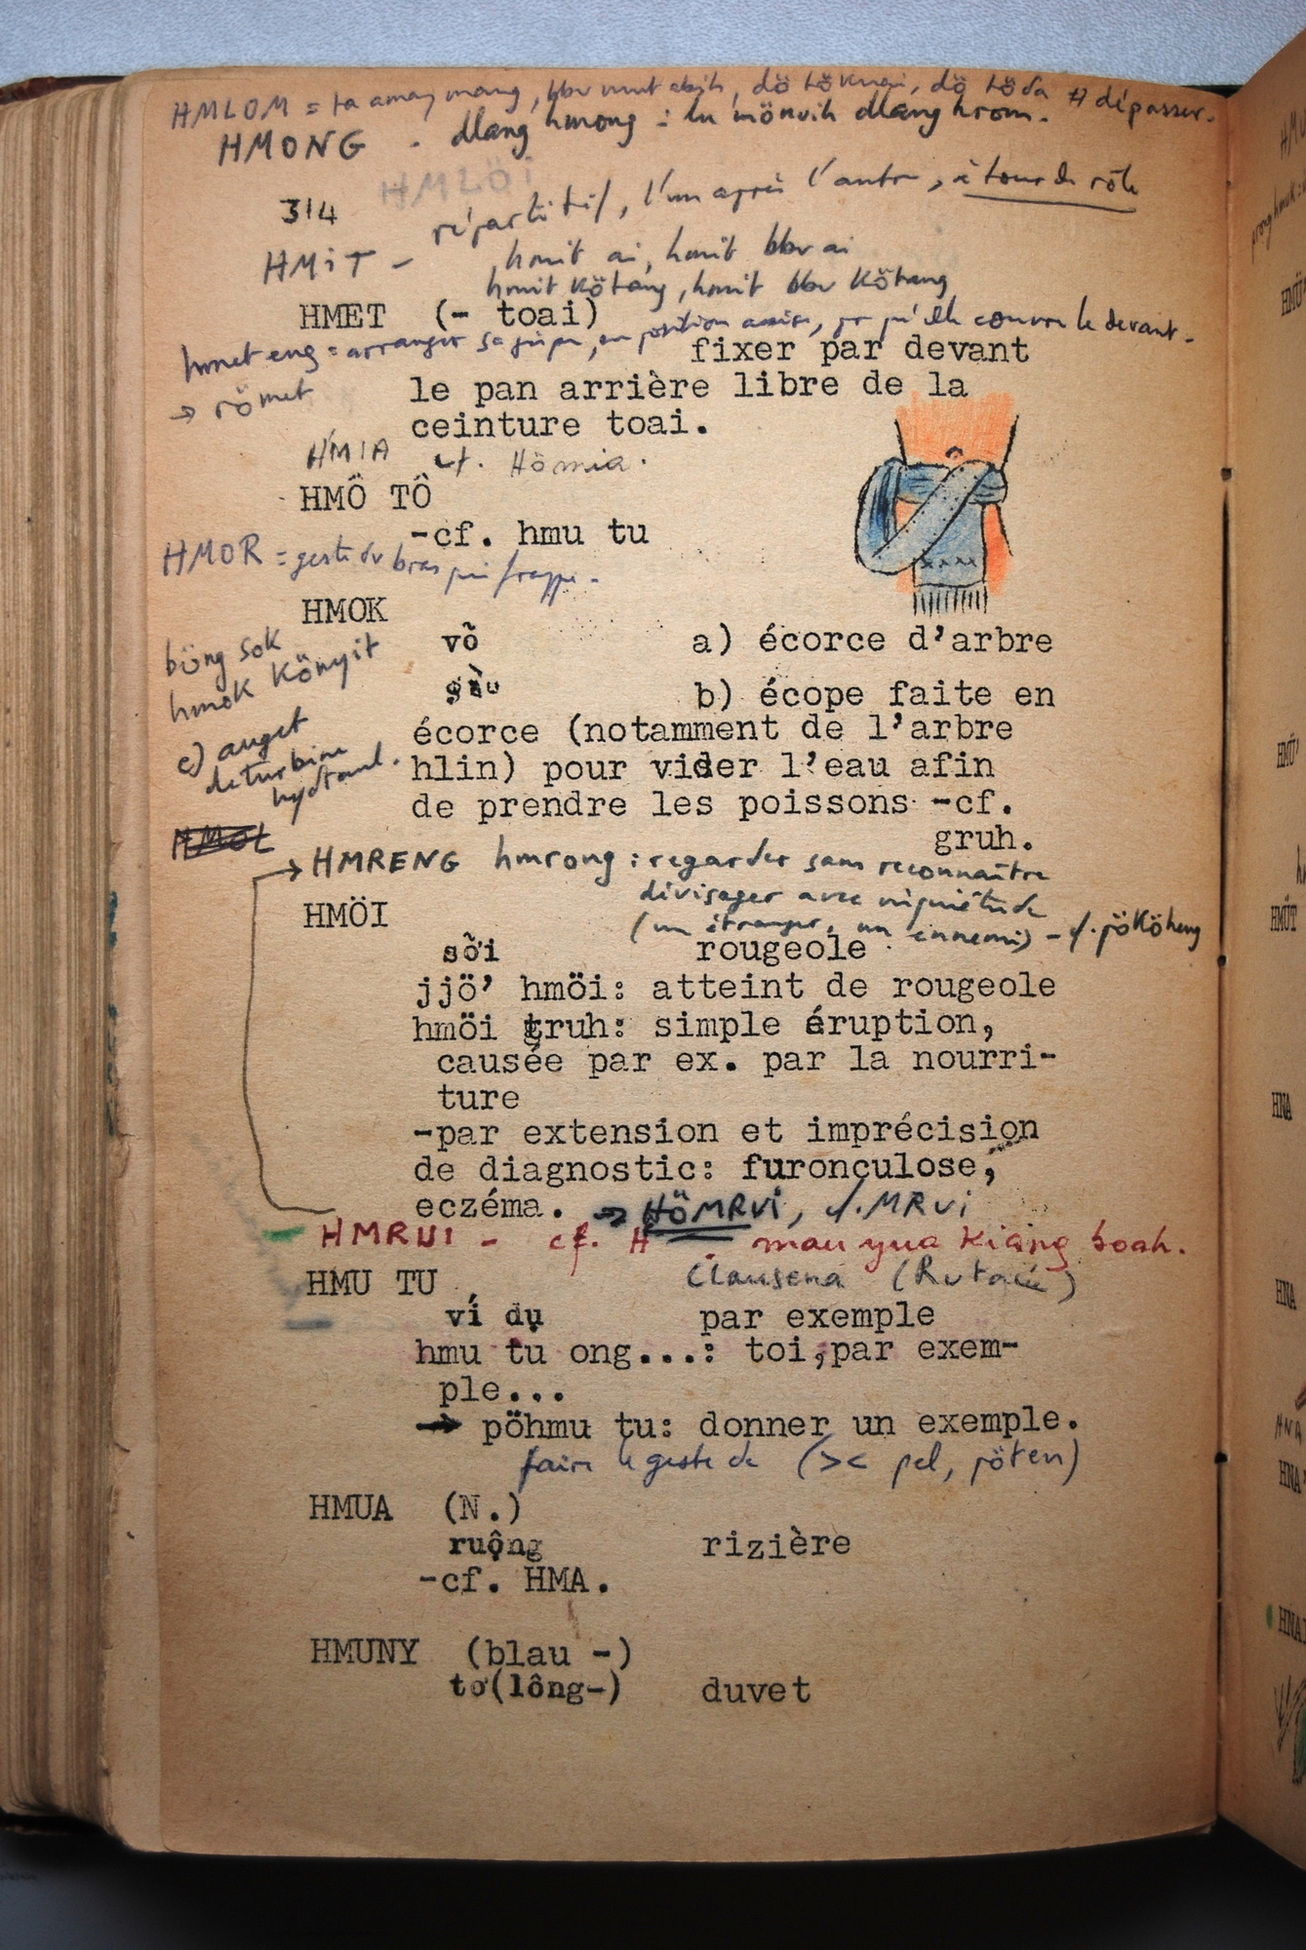 HMLOM = ta amang mang, dö töda # dépasser.
HMONG . dlang hmong : lu mönuih dlang hrom.
HMLÖI
314
répartitif, l'un après l'autre, à tour de rôle
HMiT - hmit ai, hmit bbr ai
hmit kötang, hmit bbr kötang
HMET (- toai)
hmet eng = arranger sa jupe, en position assise, pr qu'elle couvre le devant.
fixer par devant
→ römet
le pan arrière libre de la
ceinture toai.
HMIA cf. Hömia.
HMÔ TÔ
-cf. hmu tu
HMOR = geste du bras qui frappe.
HMOK
vỏ a) écorce d'arbre
böng sok
hmok könyit
gàu b) écope faite en
écorce (notamment de l'arbre
c) auget
de turbine
hydraul.
hlin) pour vider l'eau afin
de prendre les poissons -cf.
gruh.
→ HMRENG hmrong : regarder sans reconnaître
déivsager avec inquiétude
(un étranger, un ennemi) - cf. pököheng
HMÖI
sởi rougeole
jjö' hmöi: atteint de rougeole
hmöi truh: simple éruption,
causée par ex. par la nourri-
ture
-par extension et imprécision
de diagnostic: furonculose,
eczéma. → HÖMRVi, cf. MRVi
HMRUI - cf. H . mau yua kiang boah.
Clausena (Rutacée)
HMU TU
ví dụ par exemple
hmu tu ong...: toi,par exem-
ple...
→ pöhmu tu: donner un exemple.
faire le geste de (>< pel, pöten)
HMUA (N.)
ruộng rizière
-cf. HMA.
HMUNY (blau -)
tơ(lông-) duvet